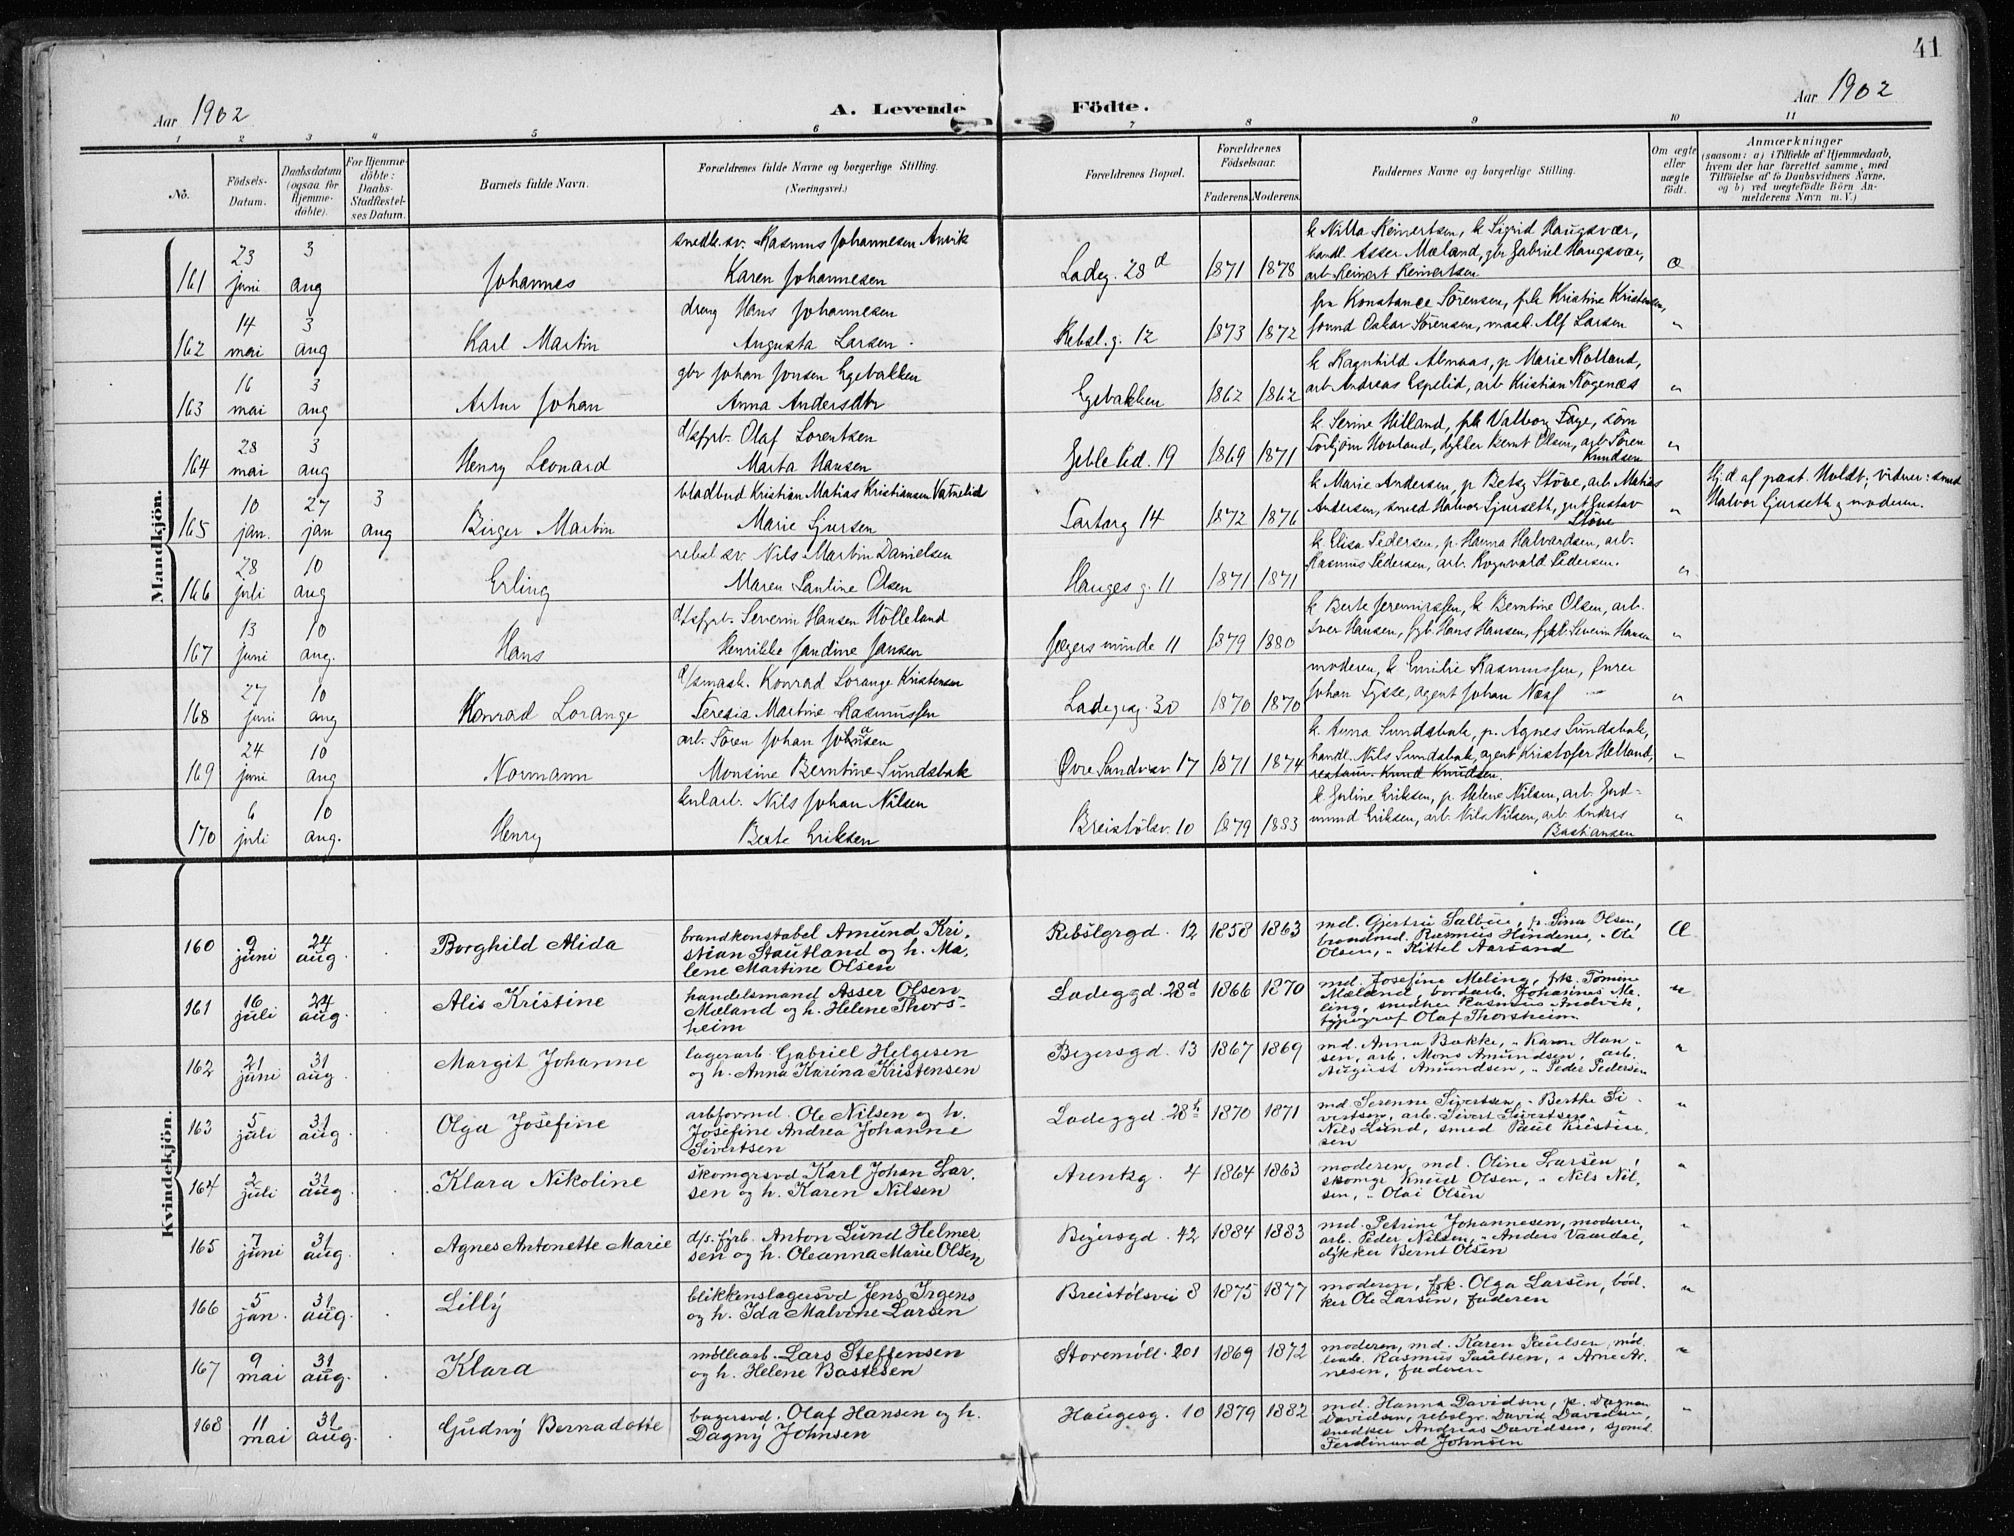 41
Aar 1902 A. Levende Födte. Aar 1902
1 2 3 4 5 6 7 8 9 10 11
No. Födsels-Datum. Daabsdatum (ogsaa for Hjemme-döbte). For Hjemme-döbte: Daabs-Stadfæstel-ses Datum. Barnets fulde Navn. Forældrenes fulde Navne og borgerlige Stilling. (Næringsvei.) Forældrenes Bopæl. Forældrenes Födselsaar. Faderens Moderens. Faddernes Navne og borgerlige Stilling. Om ægte eller uægte födt. Anmærkninger (saasom: a) i Tilfælde af Hjemmedaab, hvem der har forrettet samme, med Tilföielse af to Daabsvidners Navne, og b) ved uægtefödte Börn An-melderens Navn m. V.)
Mandkjön.
161 23 juni 3 aug Johannes snedk.sv. Rasmus Johannesen Anvik
Karen Johannesen Ladeg. 28 d 1871 1878 k Nilla Reinertsen, k Sigrid Haugsvær,
handl. Asser Mæland, gbr Gabriel Haugsvær,
arb Reinert Reinertsen æ
162 14 mai 3 aug Karl Martin dreng Hans Johannesen
Augusta Larsen. Rebsl.g. 12 1873 1872 fru Konstance Sörensen, frk Kristine Kristensen,
formd Oskar Sörensen, mask. Alf Larsen "
163 16 mai 3 aug Artur Johan gbr Johan Jonsen Egebakken
Anna Andersdtr Egebakken 1862 1862 k Ragnhild Almaas, p Marie Kalland,
arb Andreas Espelid, arb Kristian Kogenæs "
164 28 mai 3 aug Henry Leonard d/sfyrb. Olaf Lorentsen
Marta Hansen Geble Ped. 19 1869 1871 k Serine Hilland, frk Valborg Fage, sörn
Torbjörn Hovland, dykker Bernt Olsen, arb Sören
Knudsen "
165 10 jan. 27 jan 3 aug Birger Martin bladbud Kristian Matias Kristiansen Vatnelid
Marie Gjursen Tartarg 14 1872 1876 k Marie Andersen, p Betzy Stöve, arb Matias
Andersen, smed Halvor Gjurseth, gut Gustav
Stöve " Hj.d. af past. Holdt; vidner: smed
Halvor Gjurseth og moderen.
166 28 juli 10 aug Erling rebsl.sv. Nils Martin Danielsen
Maren Pauline Olsen Hauges g. 11 1871 1871 k Elisa Pedersen, p. Hanna Halvardsen, arb.
Rasmus Pedersen, arb. Rognvald Pedersen. "
167 13 juni 10 aug. Hans d/sfyrb. Severin Hansen Hölleland
Henrikke Jandine Jansen Jægers minde 11 1879 1880 k Berte Jeremiassen, k Berntine Olsen, arb.
Iver Hansen, fyrb. Hans Hansen, fyrb. Severin Hansen "
168 27 juni 10 aug Konrad Lorange d/smask. Konrad Lorange Kristensen
Teresia Martine Rasmussen Ladegg. 30 1870 1870 moderen, k Emilie Rasmussen, fyrer
Johan Tysse, agent Johan Næss "
169 24 juni 10 aug Normann arb. Sören Johan Johansen
Monsine Berntine Sundsbak Övre Sandvav 17 1871 1874 k. Anna Sundsbak, p. Agnes Sundsbak,
handl. Nils Sundsbak, agent Kristofer Helland,
restaur. Knud Knudsen. "
170 6 juli 10 aug. Henry kularb. Nils Johan Nilsen
Berte Eriksen Breistölsv. 10 1879 1883 k Gurline Eriksen, p. Helene Nilsen, arb. Gud-
mund Eriksen, arb. Nils Nilsen, arb. Anders
Bastiansen "
Kvindekjön.
160 9 juni 24 aug. Borghild Alida brandkonstabel Amund Kri-
stian Stautland og h. Ma-
lene Martine Olsen Rebslgrgd. 12 1858 1863 md. Gjertrü Sælbue, p. Sina Olsen,
brandmd. Rasmus Hindenes, " Ole
Olsen, " Kittel Aarsand Æ
161 16 juli 24 aug. Alis Kristine handelsmand Asser Olsen
Mæland og h. Helene Thors-
heim Ladeggd. 28d 1866 1870 md. Josefine Meling, frk. Tomine
Mæland, bordarb. Johannes Me-
ling, snedker Rasmus Andvik,
typograf Olaf Thorsheim. "
162 21 juni 31 aug. Margit Johanne lagerarb. Gabriel Helgesen
og h. Anna Karina Kristensen Beyersgd. 13 1867 1869 md. Anna Bakke, " Karen Han-
sen, arb. Mons Amundsen, arb.
August Amundsen, " Peder Pedersen "
163 5 juli 31 aug. Olga Josefine arbformd. Ole Nilsen og h.
Josefine Andrea Johanne
Sivertsen Ladeggd. 28h 1870 1871 md. Serenne Sivertsen, " Berthe Si-
vertsen, arb. Sivert Sivertsen, "
Nils Lund, smed Paul Kristian-
sen "
164 2 juli 31 aug. Klara Nikoline skomgrsvd Karl Johan Lar-
sen og h. Karen Nilsen Arentzg. 4 1864 1863 moderen, md. Oline Larsen,
skomgr Knud Olsen, " Nils Nil-
sen, " Olai Olsen "
165 7 juni 31 aug. Agnes Antonette Marie d/s. fyrb. Anton Lund Helmer-
sen og h. Oleanna Marie Olsen Beyersgd. 42 1884 1883 md. Petrine Johannesen, moderen,
arb. Peder Nilsen, " Anders Vaardal,
dykker Bernt Olsen "
166 5 jan. 31 aug. Lilly blikkenslagersvd Jens Irgens
og h. Ida Malvine Larsen Breistölsvei 8 1875 1877 moderen, frk. Olga Larsen, bød-
ker Ole Larsen, faderen "
167 9 mai 31 aug. Klara møllearb. Lars Steffensen
og h. Helene Bastesen Storemöll. 201 1869 1872 moderen, md. Karen Paulsen, møl-
learb. Rasmus Paulsen, " Arne Ar-
nesen, faderen "
168 11 mai 31 aug. Gudny Bernadotte bagersvd. Olaf Hansen og h.
Dagny Johnsen Haugesg. 10 1879 1882 md. Hanna Davidsen, p. Dagny
Davidsen, rebslgr. David Davidsen,
snedker Andreas Davidsen, sjømd.
Ferdinand Johnsen "